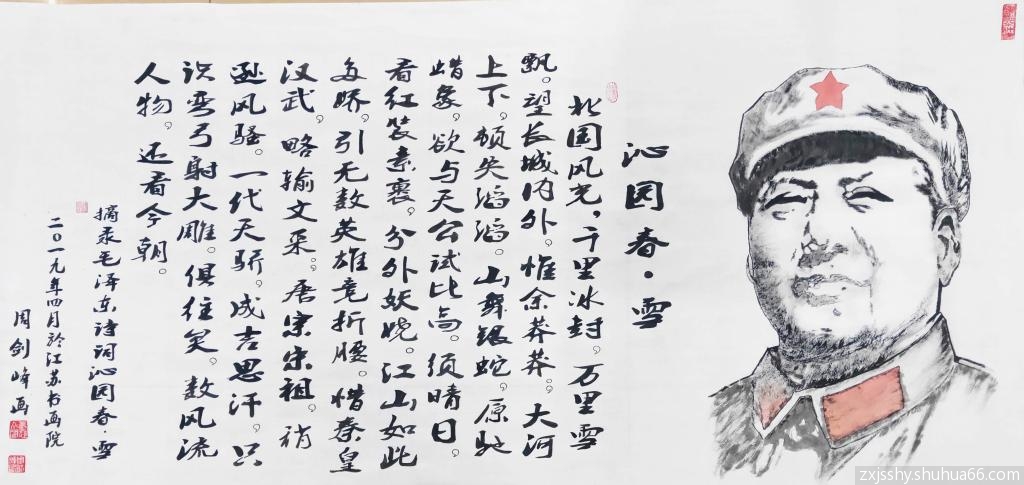 沁园春·雪
北国风光，千里冰封，万里雪
飘。望长城内外，惟余莽莽。大河
上下，顿失滔滔。山舞银蛇，原驰
蜡象，欲与天公试比高。须晴日。
看红装素裹，分外妖娆。江山如此
多娇，引无数英雄竞折腰。惜秦皇
汉武，略输文采。唐宗宋祖，稍
逊风骚。一代天骄，成吉思汗，只
识弯弓射大雕。俱往矣，数风流
人物，还看今朝。
摘录毛泽东诗词沁园春·雪
二〇一九年四月於江苏书画院
周剑峰画
zxjsshy.shuhua66.com